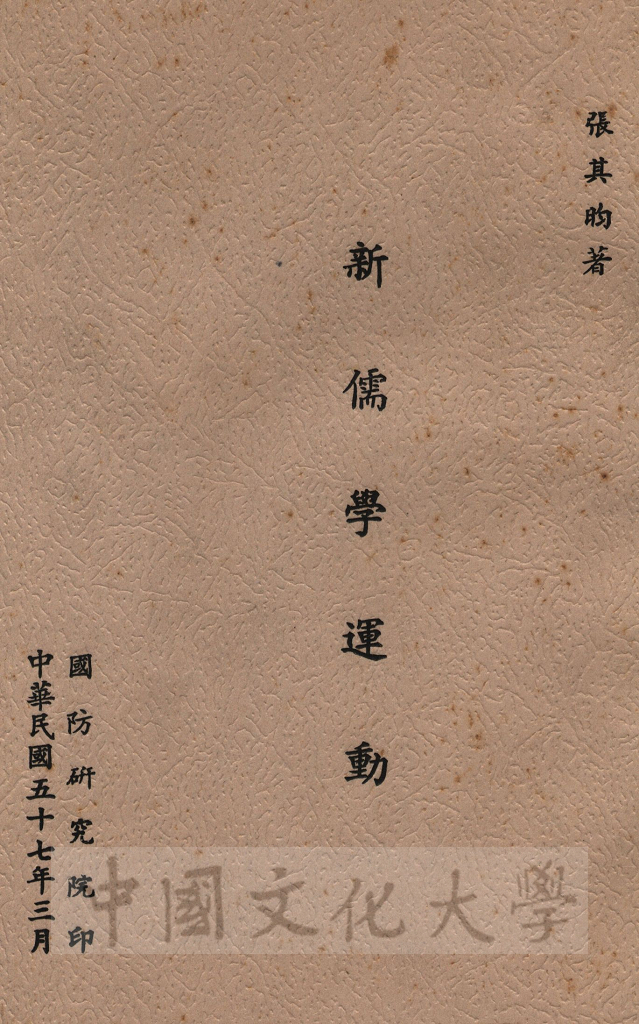 張其昀著
新儒學運動
國防研究院印
中華民國五十七年三月
中國文化大學